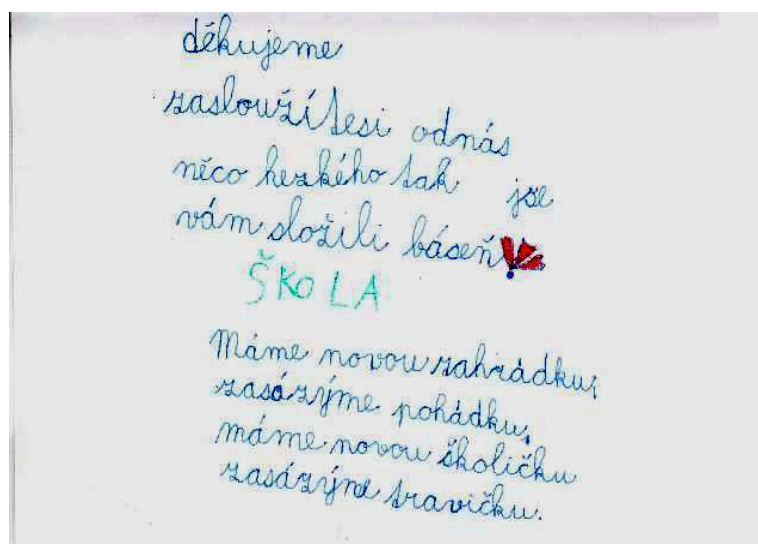 děkujeme
zasloužítesi odnás
něco hezkého tak jse
vám složili báseň!
ŠKOLA
Máme novou zahrádku,
zasázýme pohádku,
máme novou školičku
zasázýme travičku.